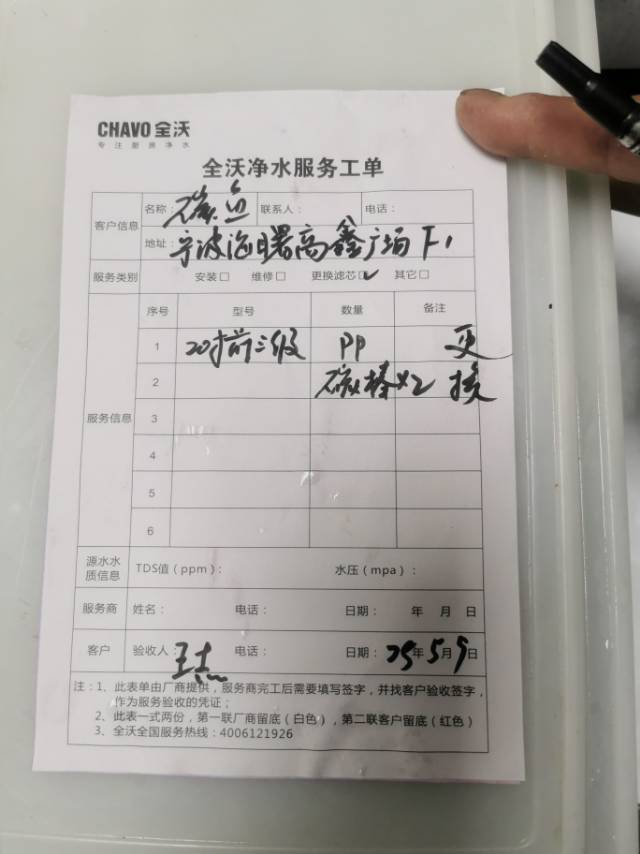 CHAVO 全沃
专注厨房净水
全沃净水服务工单
客户信息 名称： 联系人： 电话：
地址：宁波海曙高鑫广场F1
服务类别 安装□ 维修□ 更换滤芯☑ 其它□
服务信息 序号 型号 数量 备注
1 20寸前三级 PP 更
2 碳棒×2 换
3
4
5
6
源水水质信息 TDS值（ppm）： 水压（mpa）：
服务商 姓名： 电话： 日期： 年 月 日
客户 验收人：王杰 电话： 日期：25年5月9日
注：1、此表单由厂商提供，服务商完工后需要填写签字，并找客户验收签字，
作为服务验收的凭证；
2、此表一式两份，第一联厂商留底（白色），第二联客户留底（红色）
3、全沃全国服务热线：4006121926